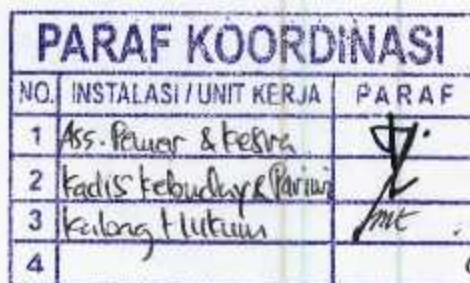 PARAF KOORDINASI
NO. INSTALASI / UNIT KERJA PARAF
1 Ass. Pemer & Kesra
2 Kadis Kebuday & Pariwi
3 Kabag Hukum
4